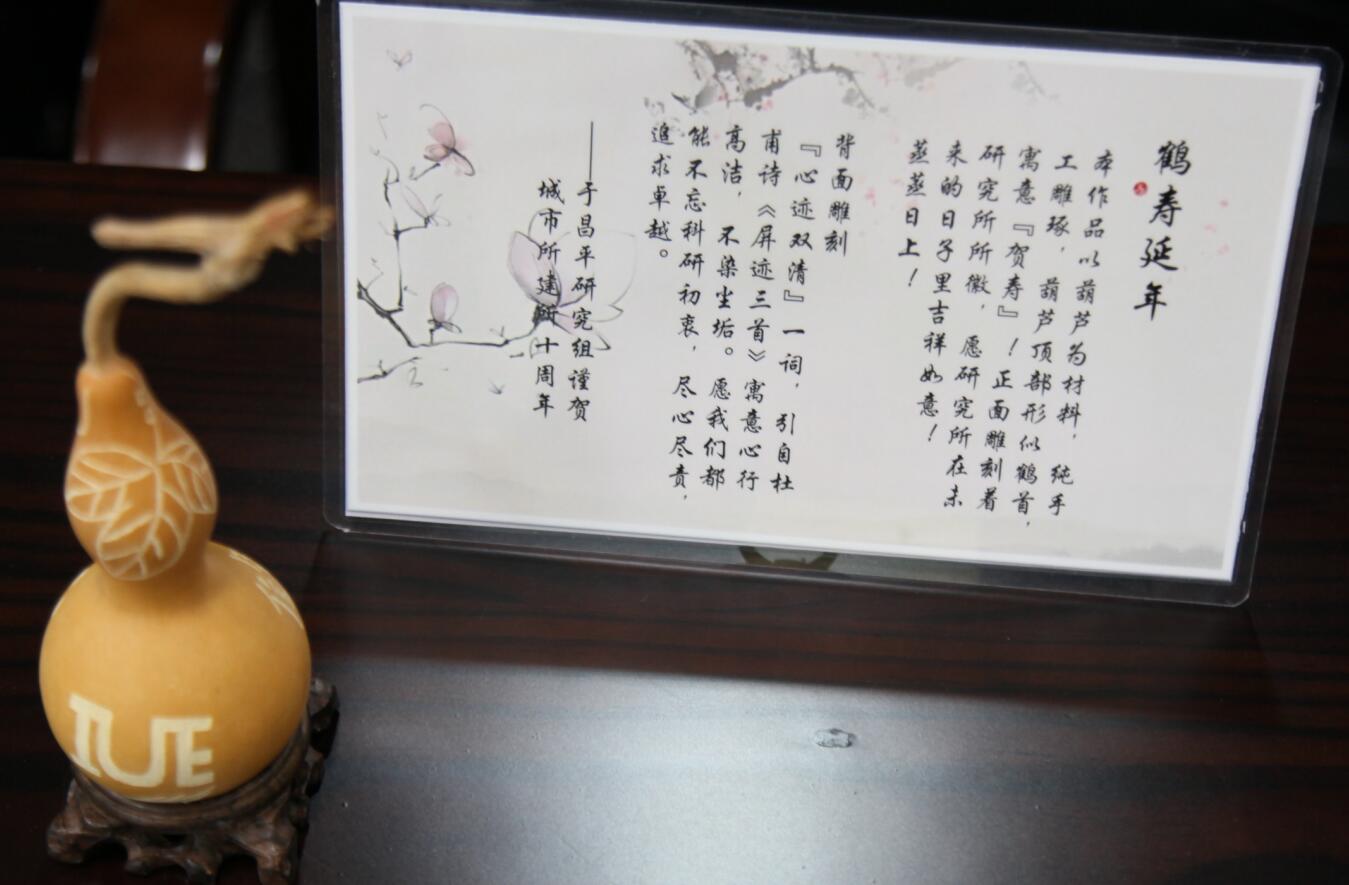 鹤寿延年
本作品以葫芦为材料，纯手
工雕琢，葫芦顶部形似鹤首，
寓意『贺寿』！正面雕刻着
研究所所徽，愿研究所在未
来的日子里吉祥如意！
蒸蒸日上！
背面雕刻
『心迹双清』一词，引自杜
甫诗《屏迹三首》寓意心行
高洁，不染尘垢。愿我们都
能不忘科研初衷，尽心尽责，
追求卓越。
——于昌平研究组谨贺
城市所建所十周年
IUE